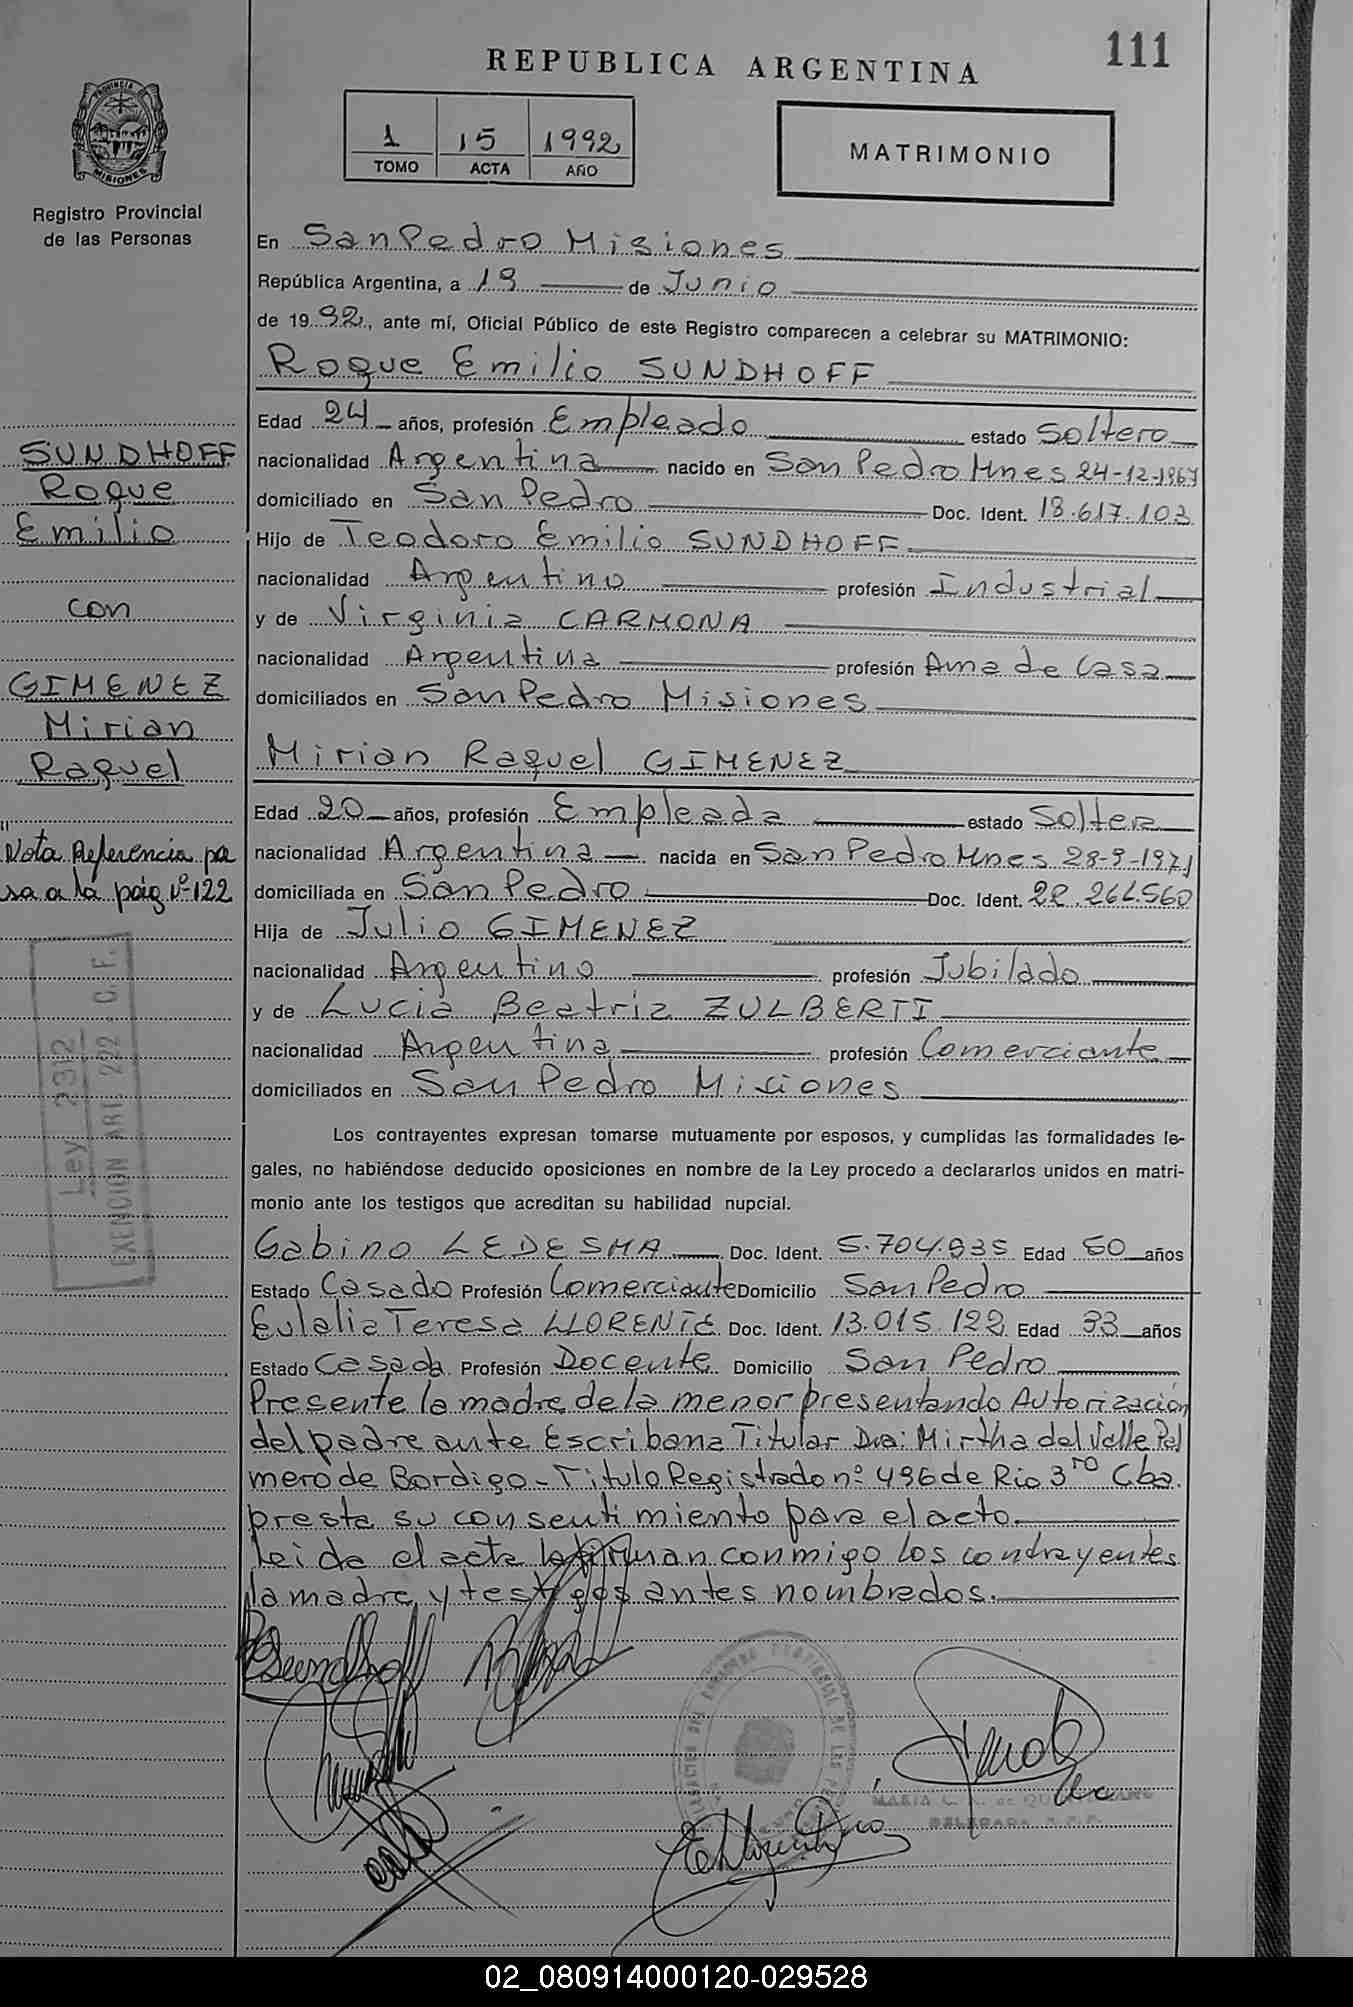 111
REPUBLICA ARGENTINA
1 15 1992
TOMO ACTA AÑO
MATRIMONIO
PROVINCIA
MISIONES
Registro Provincial
de las Personas
En San Pedro Misiones
República Argentina, a 19 de Junio
de 1992, ante mí, Oficial Público de este Registro comparecen a celebrar su MATRIMONIO:
Roque Emilio SUNDHOFF
Edad 24 años, profesión Empleado estado Soltero
nacionalidad Argentina nacido en San Pedro Mnes 24-12-1967
domiciliado en San Pedro Doc. Ident. 18.617.103
Hijo de Teodoro Emilio SUNDHOFF
nacionalidad Argentino profesión Industrial
y de Virginia CARMONA
nacionalidad Argentina profesión Ama de Casa
domiciliados en San Pedro Misiones
Mirian Raquel GIMENEZ
Edad 20 años, profesión Empleada estado Soltera
nacionalidad Argentina nacida en San Pedro Mnes 28-9-1971
domiciliada en San Pedro Doc. Ident. 22.264.560
Hija de Julio GIMENEZ
nacionalidad Argentino profesión Jubilado
y de Lucia Beatriz ZULBERTI
nacionalidad Argentina profesión Comerciante
domiciliados en San Pedro Misiones
Los contrayentes expresan tomarse mutuamente por esposos, y cumplidas las formalidades le-
gales, no habiéndose deducido oposiciones en nombre de la Ley procedo a declararlos unidos en matri-
monio ante los testigos que acreditan su habilidad nupcial.
Gabino LEDESMA Doc. Ident. 5.704.935 Edad 60 años
Estado Casado Profesión Comerciante Domicilio San Pedro
Eulalia Teresa LLORENTE Doc. Ident. 13.015.122 Edad 33 años
Estado Casada Profesión Docente Domicilio San Pedro
Presente la madre de la menor presentando Autorización
del padre ante Escribana Titular Dra: Mirtha del Valle Pal
mero de Bordigo - Titulo Registrado nº 496 de Rio 3ro Cba.
presta su consentimiento para el acto.
Leida el acta la firman conmigo los contrayentes
la madre y testigos antes nombrados.
SUNDHOFF
Roque
Emilio
con
GIMENEZ
Mirian
Raquel
Nota Referencia pa
sa a la pág Nº 122
Ley 2312
EXENCION ART. 222 C. F.
Sundhoff
MARIA C.
DELEGADA
02_080914000120-029528